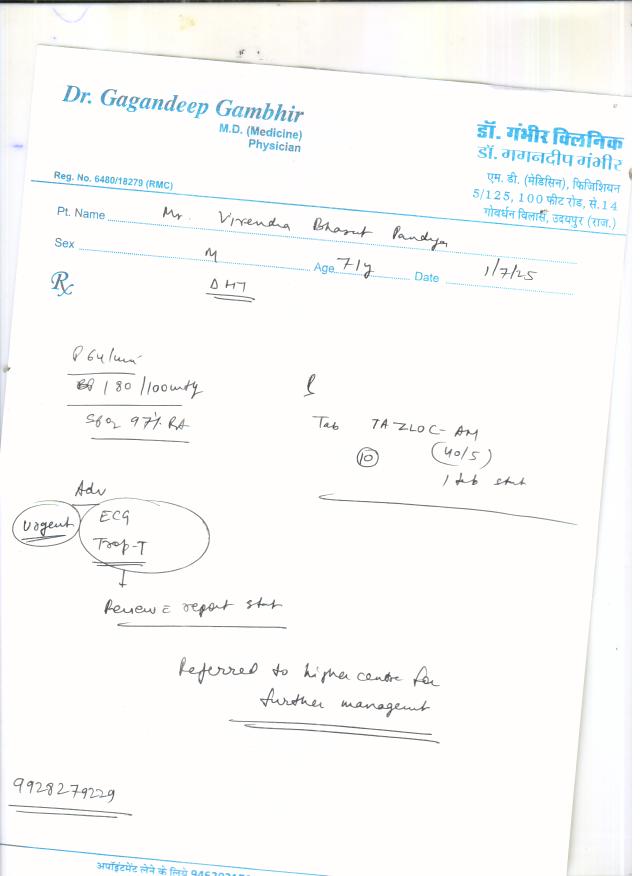 Dr. Gagandeep Gambhir
M.D. (Medicine)
Physician
Reg. No. 6480/18279 (RMC)
डॉ. गंभीर क्लिनिक
डॉ. गगनदीप गंभीर
एम. डी. (मेडिसिन), फिजिशियन
5/125, 100 फीट रोड, से.14
गोवर्धन विलास, उदयपुर (राज.)
Pt. Name Mr. Virendra Bharat Pandya
Sex M Age 71y Date 1/7/25
Rx
Δ HT
P 64/min
BP 180/100mmHg
SpO2 97% RA
Tab TAZLOC-AM
10 (40/5)
1 tab stat
Adv
Urgent ECG
Trop-T
Review c report stat
Referred to higher centre for
further managemt
9928279229
अपॉइंटमेंट लेने के लिये